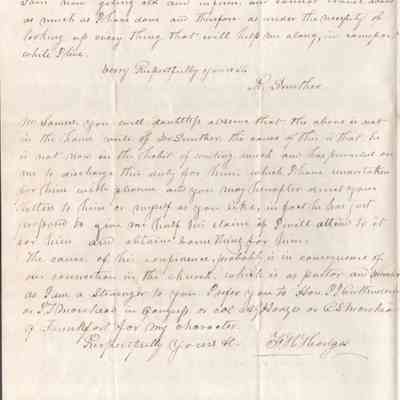 I am now getting old and infirm, and cannot
as much as I have done and therefore as under the necessity of
looking up every thing that will help me along, in comfort
while I live.
Very Respectfully yours &c
Mr Samuel, you will doubtless observe that the above is not
in the hand write of the cause of this is that he
is not now in the habit of writing much and has prevailed on
me to discharge this duty for him, which I have undertaken
for him with pleasure and you may hereafter direct your
letters to him or myself as you like, in fact he has just
proposed to give me half his claim if I will attend to it
for him and obtain something for him.
The cause of his confidence, probably is in consequence of
our connection in the church, which is as pastor and member
as I am a Stranger to you I refer you to Hon.
or Morehead in Congress or Col Hodges or C S Morehead
of Frankfort for my character.
Respectfully yours &c. Hodges